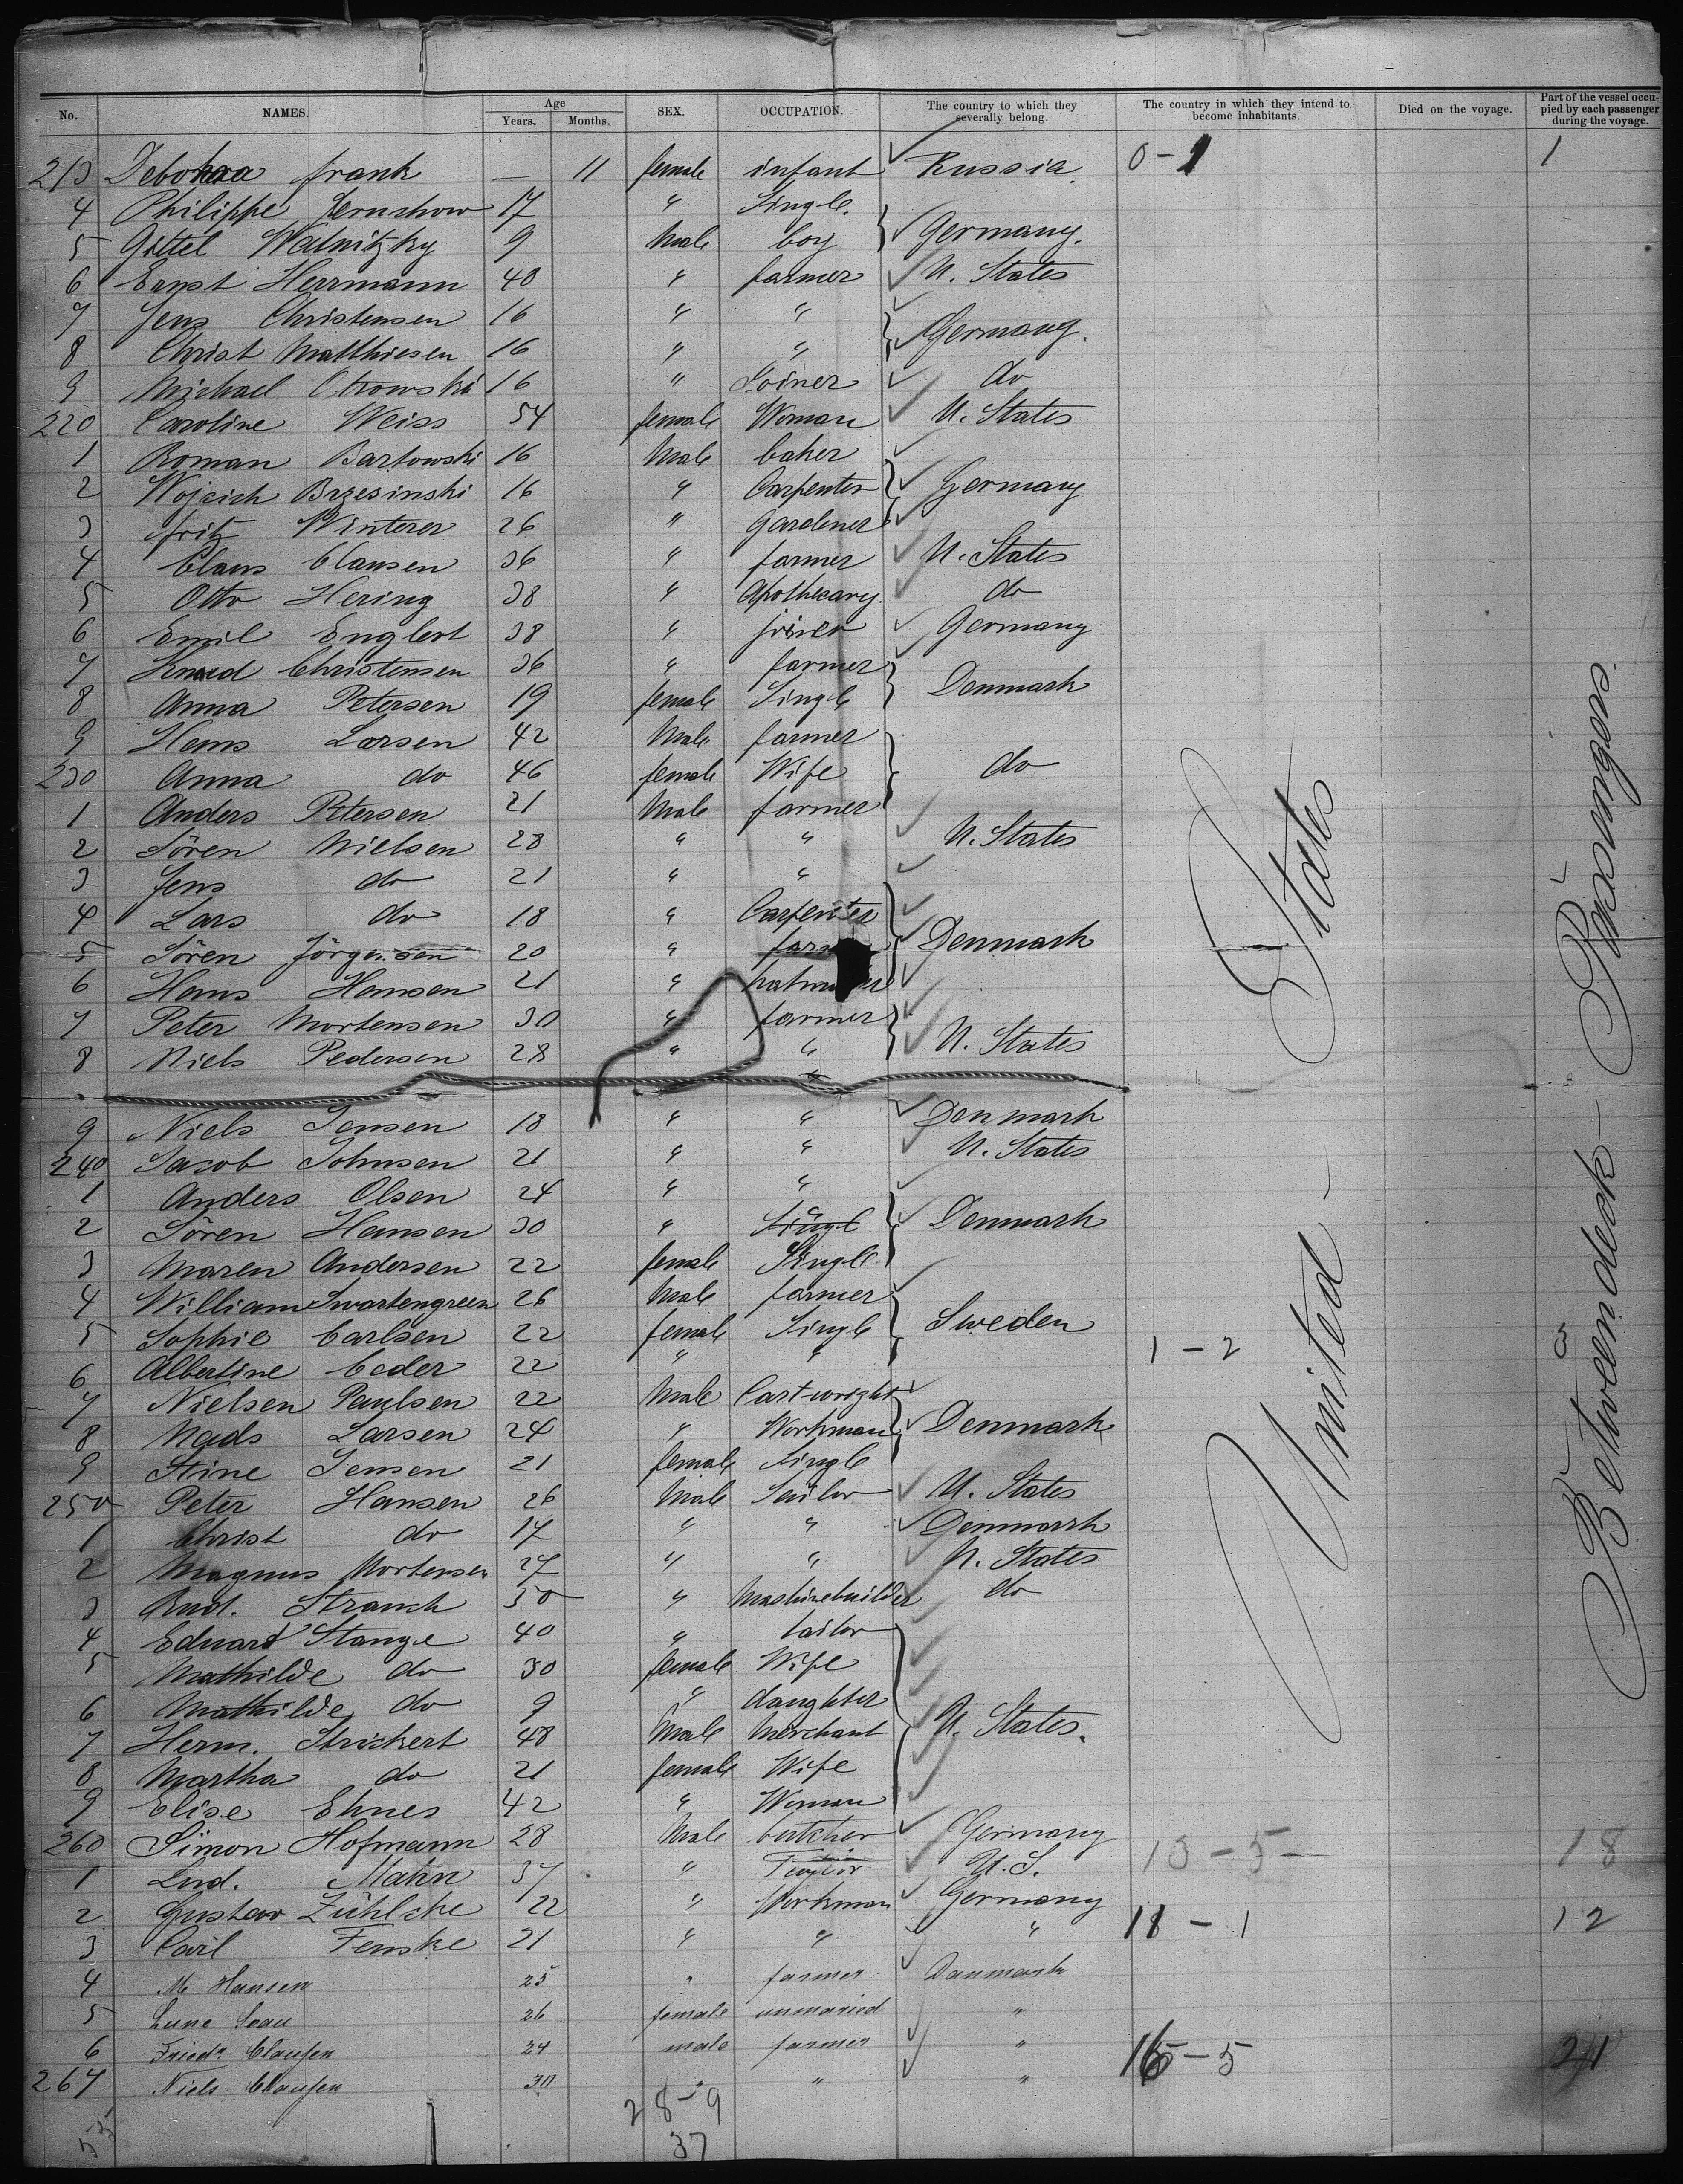 No. NAMES. Age Years. Months. SEX. OCCUPATION. The country to which they severally belong. The country in which they intend to become inhabitants. Died on the voyage. Part of the vessel occupied by each passenger during the voyage.
213 frank — 11 female infant Russia 0-1 1
4 Philippe 17 " Single.
5 Gittel Walnitzky 9 Male boy Germany.
6 Ernst Herrmann 40 " farmer U. States
7 Jens Christensen 16 " "
8 Christ Matthiesen 16 " " Germany.
9 Michael Otrowski 16 " Joiner do
220 Caroline Weiss 54 female Woman U. States
1 Roman Bartowski 16 Male baker
2 Wojcich Brzesinski 16 " Carpenter Germany
3 fritz Winterer 26 " Gardener
4 Claus Clausen 36 " farmer U. States
5 Otto Hering 38 " Apothecary do
6 Emil Englert 38 " Germany
7 Knud Christensen 36 " farmer
8 Anna Petersen 19 female Single Denmark
9 Hans Larsen 42 Male farmer
230 Anna do 46 female Wife do
1 Anders Petersen 21 Male farmer
2 Sören Nielsen 28 " " U. States
3 Jens do 21 " "
4 Lars do 18 " Carpenter
5 Sören Jörgensen 20 " Denmark
6 Hans Hansen 21 "
7 Peter Mortensen 30 " farmer
8 Niels Pedersen 28 " " U. States
9 Niels Jensen 18 " " Denmark
240 Jacob Johnsen 21 " " U. States
1 Anders Olsen 24 " "
2 Sören Hansen 30 " Single Denmark
3 Maren Andersen 22 female Single
4 William Swartengreen 26 Male farmer
5 Sophie Carlsen 22 female Single Sweden
6 Albertine Ceder 22 " " 1-2
7 Nielsen Paulsen 22 Male Cartwright
8 Mads Larsen 24 " Workman Denmark
9 Stine Jensen 21 female Single
250 Peter Hansen 26 Male Sailor U. States
1 Christ do 17 " " Denmark
2 Magnus Mortensen 27 " " U. States
3 Rud. Strauch 50 " Mashinebuilder do
4 Eduard Stange 40 " tailor
5 Mathilde do 30 female Wife
6 Mathilde do 9 " daughter
7 Herm. Strickert 48 Male Merchant U. States.
8 Martha do 21 female Wife
9 Elise Ehnes 42 " Woman
260 Simon Hofmann 28 Male butcher Germany 13-5- 18
1 Lud. Mahn 37 " U.S.
2 Gustav Zühlcke 22 " Workman Germany
3 Carl Fenske 21 " " " 18-1 12
4 M. Hansen 25 " farmer Danmark
5 26 female unmaried "
6 Friedr. Clausen 24 male farmer " 16-5 21
267 Niels Clausen 30 " " "
28-9
55 37
United States
Betweendeck Passengers.